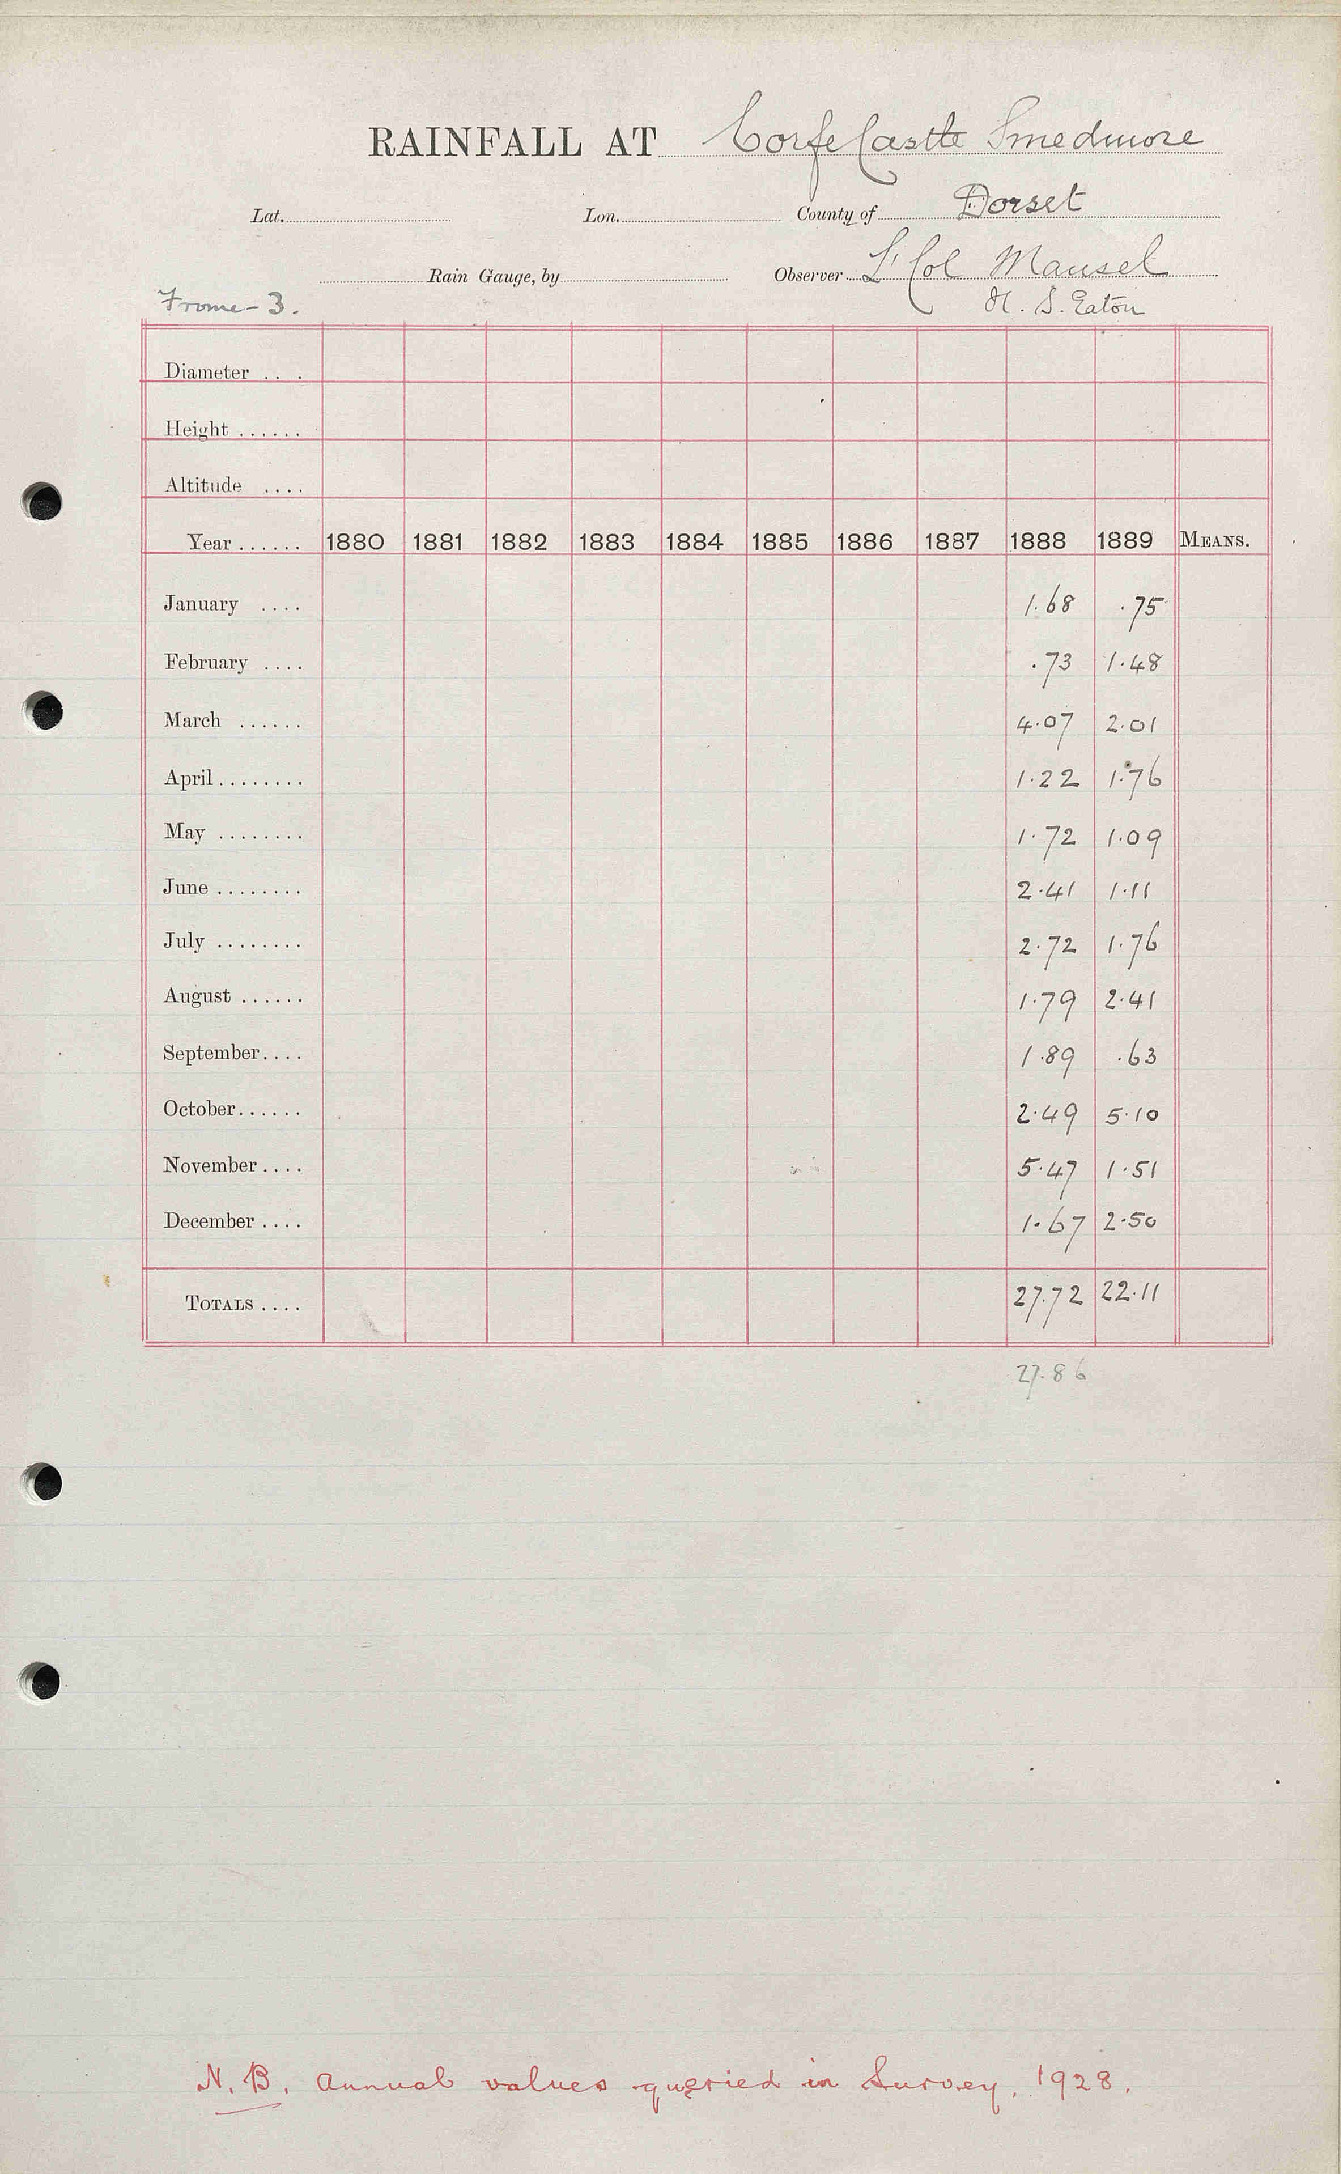 RAINFALL AT Corfe Castle Smedmore
Lat. Lon. County of Dorset
Rain Gauge, by Observer Lt Col Mansel
Frome - 3. H. S. Eaton
Diameter ...
Height ......
Altitude ....
Year ...... 1880 1881 1882 1883 1884 1885 1886 1887 1888 1889 MEANS.
January .... 1.68 .75
February .... .73 1.48
March ...... 4.07 2.01
April ........ 1.22 1.76
May ........ 1.72 1.09
June ........ 2.41 1.11
July ........ 2.72 1.76
August ...... 1.79 2.41
September.... 1.89 .63
October...... 2.49 5.10
November .... 5.47 1.51
December .... 1.67 2.50
TOTALS .... 27.72 22.11
27.86
N.B. Annual values queried in Survey, 1928.